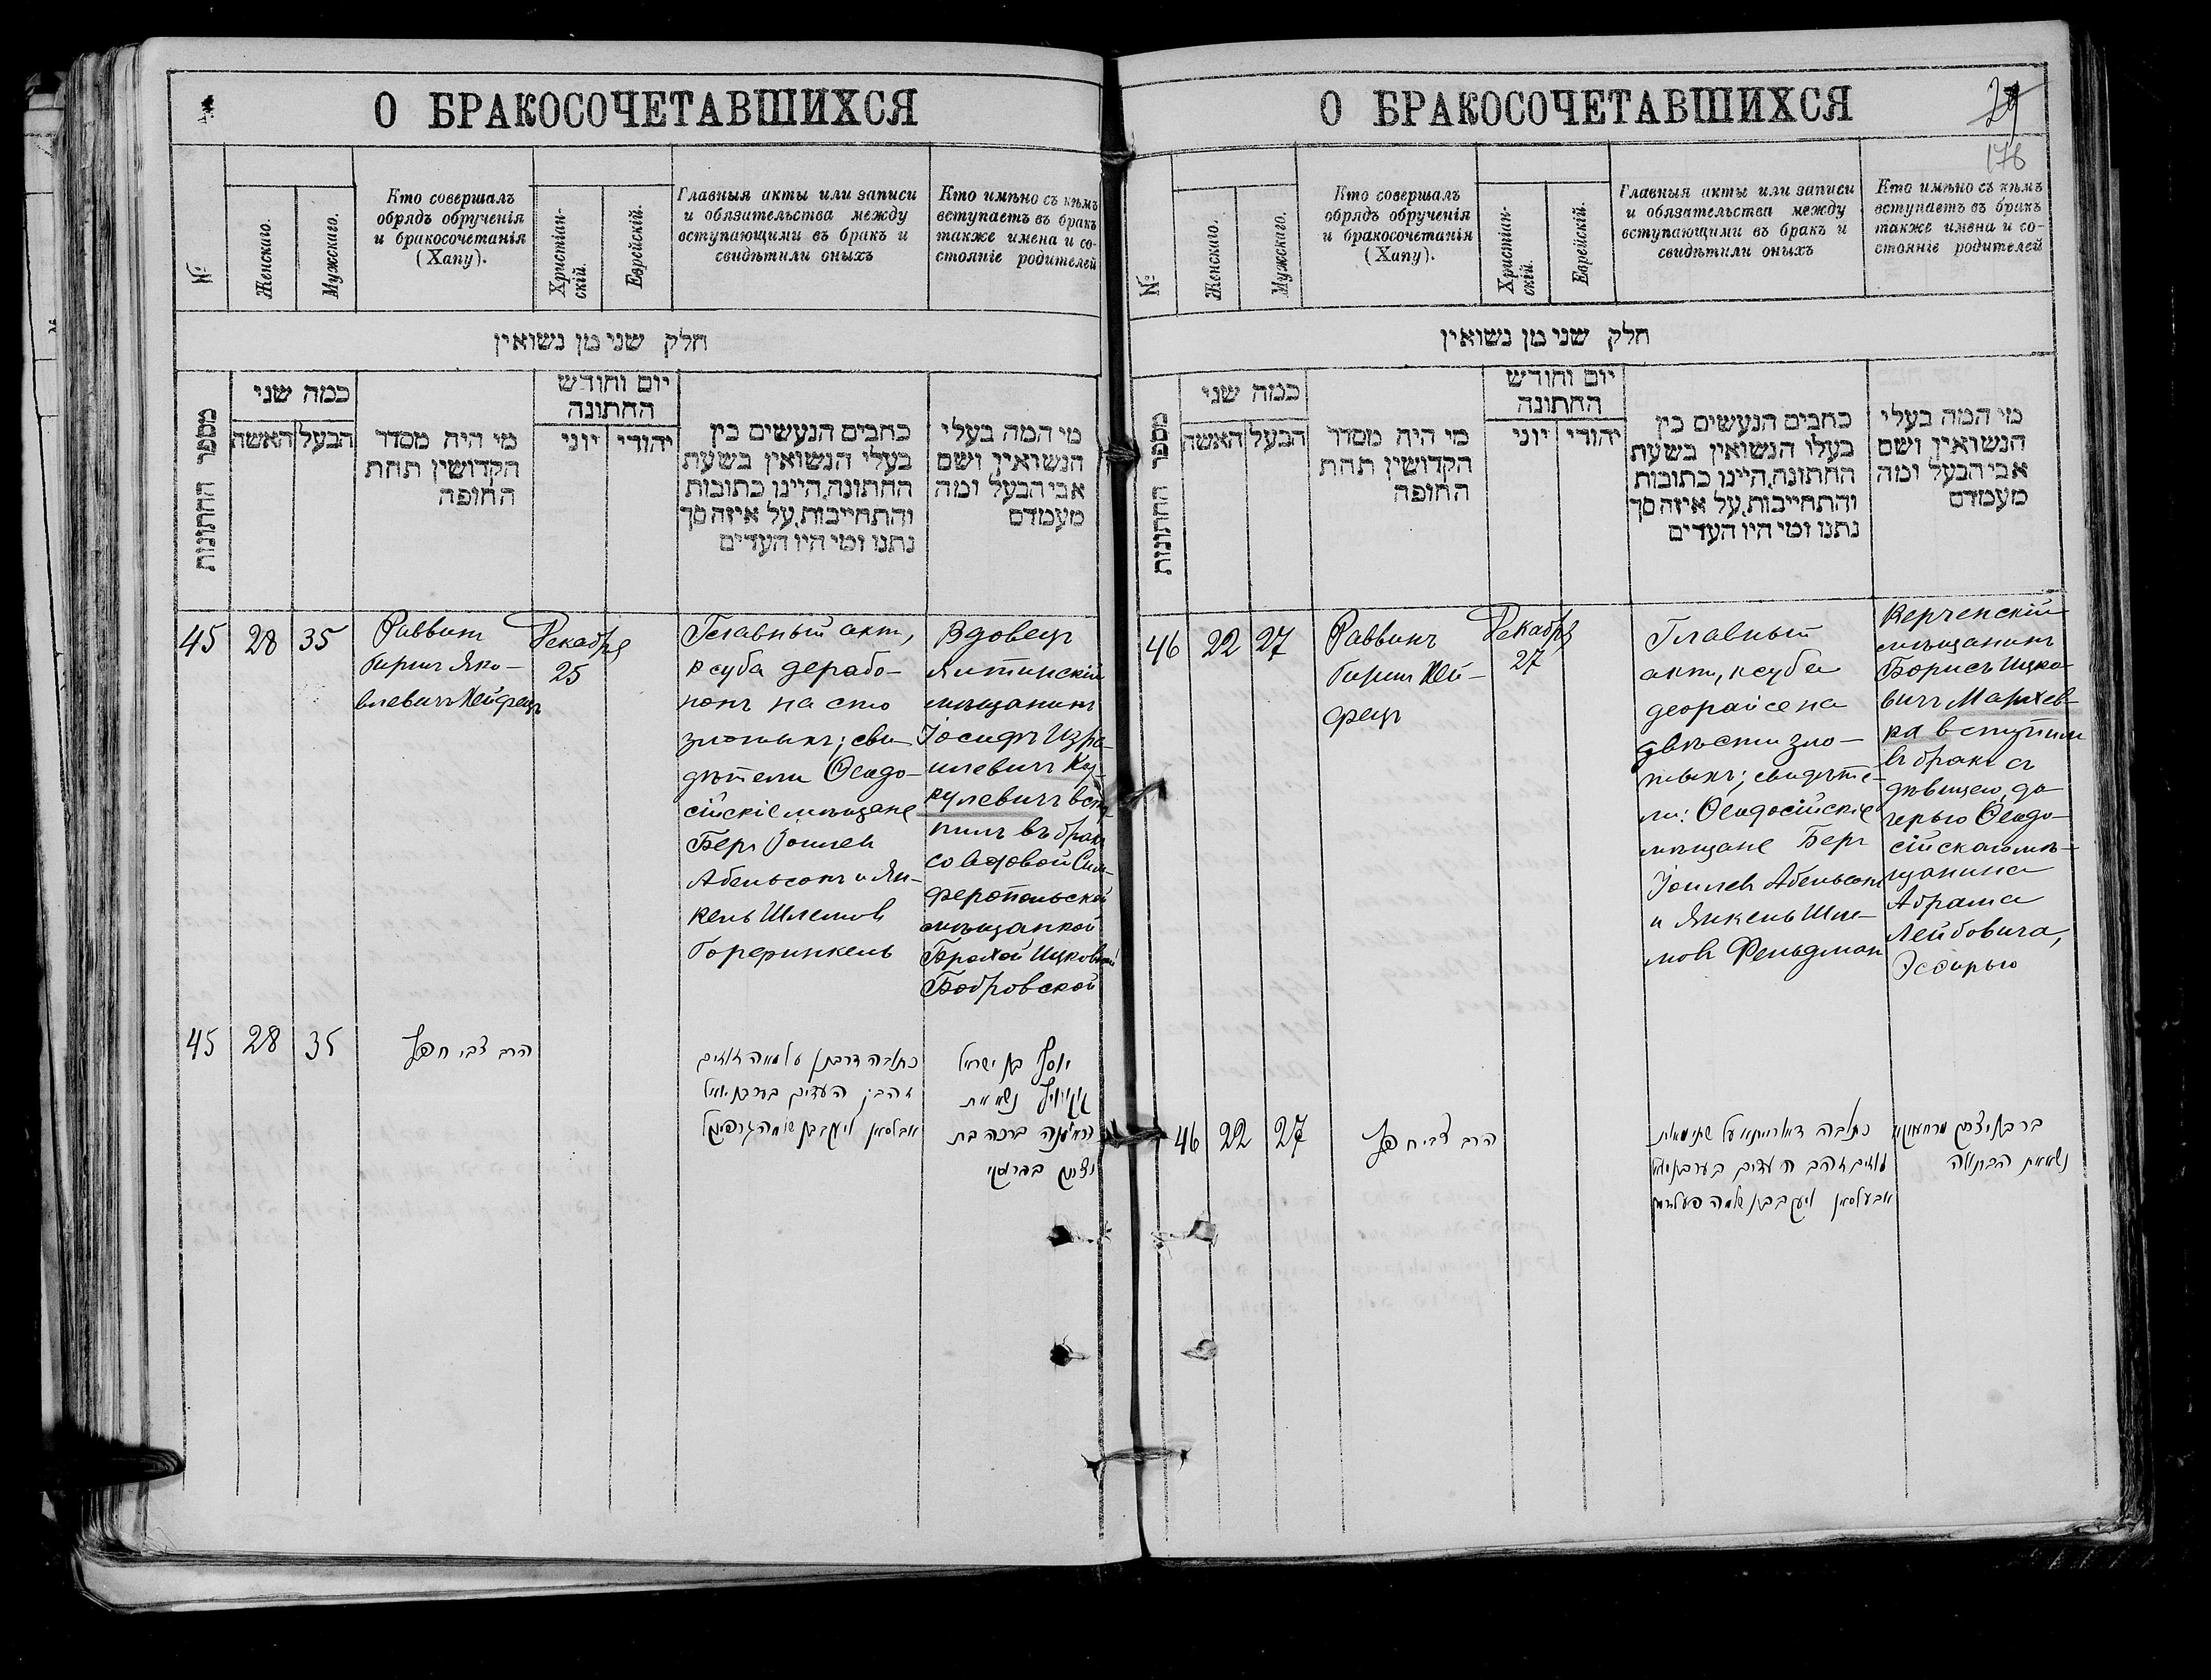 О БРАКОСОЧЕТАВШИХСЯ
№
Женскаго.
Мужскаго.
Кто совершалъ
обрядъ обрученія
и бракосочетанія
(Хапу).
Христіан-
скій.
Еврейскій.
Главныя акты или записи
и обязательства между
вступающими въ бракъ и
свидѣтили оныхъ
Кто имѣно съ кѣмъ
вступаетъ въ бракъ
также имена и со-
стояніе родителей
חלק שני מן נשואין
מספר החתונות
כמה שני
האשה
הבעל
מי היה מסדר
הקדושין תחת
החופה
יום וחודש
החתונה
יוני
יהודי
כתבים הנעשים בין
בעלי הנשואין בשעת
החתונה, היינו כתובות
והתחייבות, על איזה סך
נתנו ומי היו העדים
מי המה בעלי
הנשואין ושם
אבי הבעל ומה
מעמדם
45
28
35
Раввинъ
Гиршъ Яко-
влевичъ Хейфецъ
Декабря
25
Главный актъ,
ксуба дерабо-
нонъ на сто
злотыхъ; сви-
дѣтели Ѳеодо-
сійскіе мѣщане
Беръ Іоилев
Абельсонъ и Ян-
кель Шлемов
Горфинкель
Вдовецъ
Ялтинскій
мѣщанинъ
Іосифъ Изра-
илевичъ Ку-
кулевичъ всту-
пилъ въ бракъ
со вдовой Сим-
феропольской
мѣщанкой
Брахой Ицковной
Бобровской
45
28
35
הרב צבי חפץ
כתובה דרבנן על מאה זוזים
זהב; העדים בער בן יואל
אבלסאן ויעקב בן שלמה גרפינקל
יוסף בן ישראל
נשא את
האלמנה ברכה בת
יצחק
О БРАКОСОЧЕТАВШИХСЯ
29
176
№
Женскаго.
Мужскаго.
Кто совершалъ
обрядъ обрученія
и бракосочетанія
(Хапу).
Христіан-
скій.
Еврейскій.
Главныя акты или записи
и обязательства между
вступающими въ бракъ и
свидѣтили оныхъ
Кто имѣно съ кѣмъ
вступаетъ въ бракъ
также имена и со-
стояніе родителей
חלק שני מן נשואין
מספר החתונות
כמה שני
האשה
הבעל
מי היה מסדר
הקדושין תחת
החופה
יום וחודש
החתונה
יוני
יהודי
כתבים הנעשים בין
בעלי הנשואין בשעת
החתונה, היינו כתובות
והתחייבות, על איזה סך
נתנו ומי היו העדים
מי המה בעלי
הנשואין ושם
אבי הבעל ומה
מעמדם
46
22
27
Раввинъ
Гиршъ Хей-
фецъ
Декабря
27
Главный
актъ, ксуба
деорайсе на
двѣсти зло-
тыхъ; свидѣте-
ли: Ѳеодосійскіе
мѣщане Беръ
Іоилев Абельсонъ
и Янкель Шле-
мов Фельдман
Керченскій
мѣщанинъ
Борисъ Ицко-
вичъ
вступилъ
въ бракъ съ
дѣвицею, до-
черью Ѳеодо-
сійскаго мѣ-
щанина
Абрама
Лейбовича,
Эсѳирью
46
22
27
הרב צבי חפץ
כתובה דאורייתא על שתי מאות
זוזים זהב העדים בער בן יואל
אבעלסאן ויעקב בן שלמה פעלדמן
בר בן יצחק
נשא את הבתולה